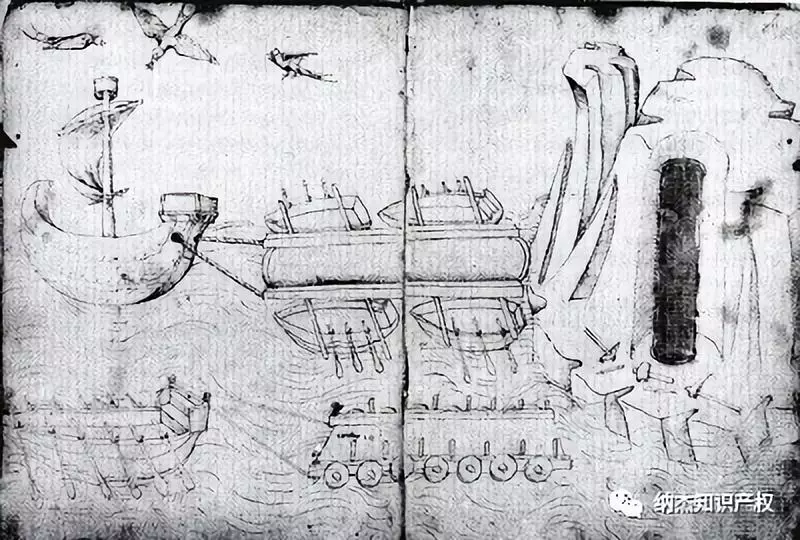 纳杰知识产权